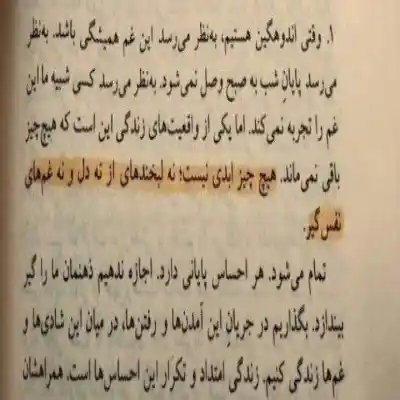 ۱. وقتی اندوهگین هستیم، به‌نظر می‌رسد این غم همیشگی باشد. به‌نظر
می‌رسد پایانِ شب به صبح وصل نمی‌شود. به‌نظر می‌رسد کسی شبیه ما این
غم را تجربه نمی‌کند. اما یکی از واقعیت‌های زندگی این است که هیچ‌چیز
باقی نمی‌ماند. هیچ چیز ابدی نیست؛ نه لبخندهای از ته دل و نه غم‌های
نفس‌گیر.
تمام می‌شود. هر احساس پایانی دارد. اجازه ندهیم ذهنمان ما را گیر
بیندازد. بگذاریم در جریانِ این آمدن‌ها و رفتن‌ها، در میان این شادی‌ها و
غم‌ها زندگی کنیم. زندگی امتداد و تکرار این احساس‌ها است. همراهشان